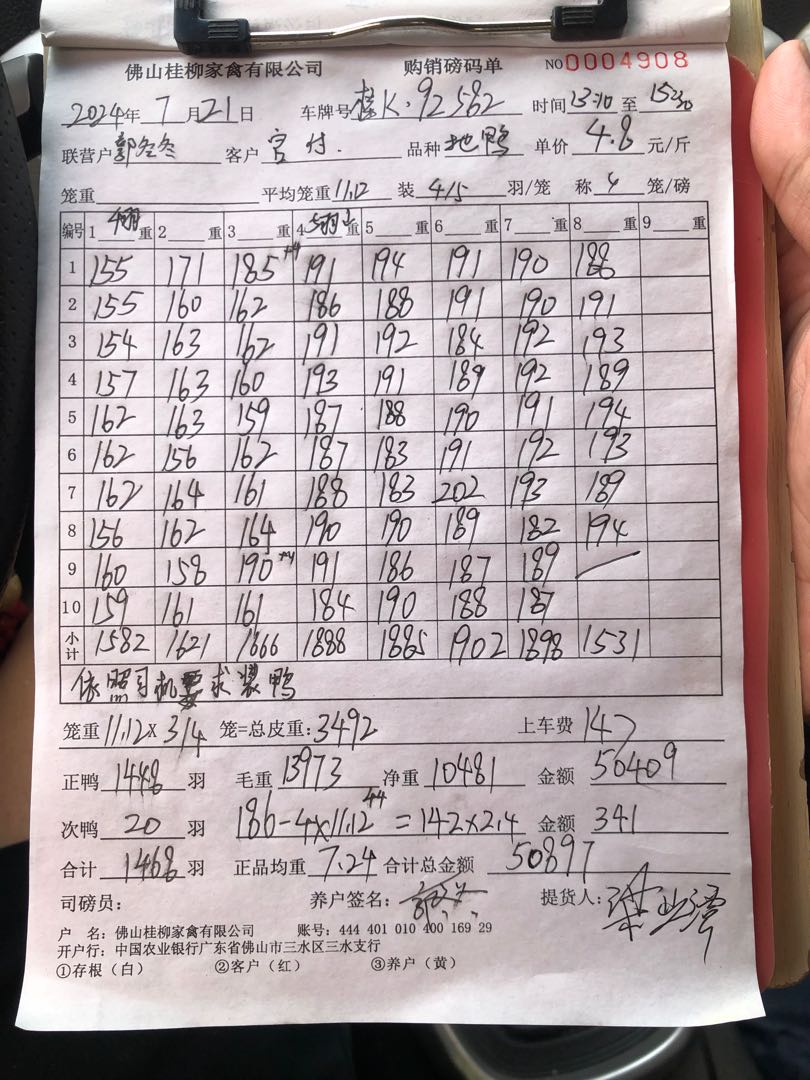 佛山桂柳家禽有限公司 购销磅码单 NO 0004908
2024年 7 月 21 日 车牌号 桂K·92562 时间 13:10 至 15:30
联营户 郭冬冬 客户 宫付. 品种 地鸭 单价 4.8 元/斤
笼重 平均笼重 11.12 装 4/5 羽/笼 称 4 笼/磅
编号 1 4羽 重 2 重 3 重 4 5羽 重 5 重 6 重 7 重 8 重 9 重
1 155 171 185 +4 191 194 191 190 188
2 155 160 162 186 188 191 190 191
3 154 163 162 191 192 184 192 193
4 157 163 160 193 191 189 192 189
5 162 163 159 187 188 190 191 194
6 162 156 162 187 183 191 192 193
7 162 164 161 188 183 202 193 189
8 156 162 164 190 190 189 182 194
9 160 158 190 +4 191 186 187 189
10 159 161 161 184 190 188 187
小计 1582 1621 1666 1888 1885 1902 1898 1531
依照司机要求装鸭
笼重 11.12 × 314 笼=总皮重: 3492 上车费 147
正鸭 1448 羽 毛重 13973 净重 10481 金额 50409
次鸭 20 羽 186-4×11.12 = 142×2.4 金额 341
合计 1468 羽 正品均重 7.24 合计总金额 50897
司磅员: 养户签名: 提货人:
户 名: 佛山桂柳家禽有限公司 账号: 444 401 010 400 169 29
开户行: 中国农业银行广东省佛山市三水区三水支行
①存根(白) ②客户(红) ③养户(黄)